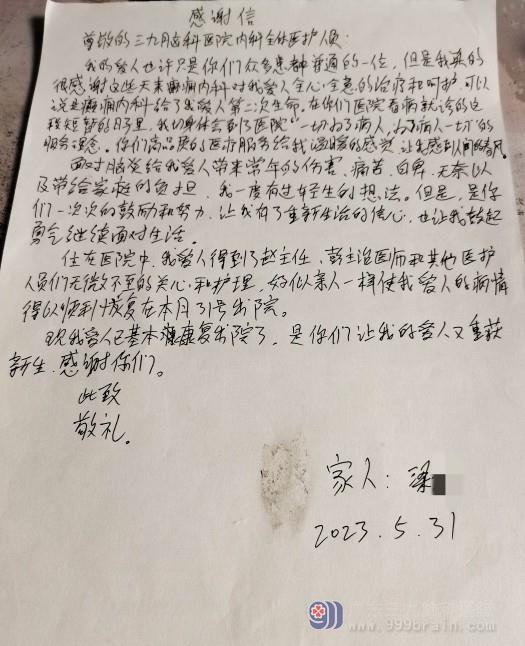 感谢信
尊敬的三九脑科医院内科全体医护人员:
我的爱人也许只是你们众多患者普通的一位,但是我真的
很感谢这些天来癫痫内科对我爱人全心全意的治疗和呵护,可以
说是癫痫内科给了我爱人第二次生命。在你们医院看病就诊的这
程短暂的日子里,我切身体会到了医院“一切为了病人,为了病人一切”的
服务理念。你们高品质的医疗服务给我温暖的感觉,让我感到人间的春风。
面对脑炎给我爱人带来常年的伤害、痛苦、自卑、无奈以
及带给家庭的负担,我一度有过轻生的想法。但是,是你
们一次次的鼓励和努力,让我有了重新生活的信心,也让我鼓起
勇气继续面对生活。
住在医院中,我爱人得到了赵主任、彭主治医师和其他医护
人员们无微不至的关心和护理,好似亲人一样使我爱人的病情
得以顺利恢复在本月31号出院。
现我爱人已基本康复出院了,是你们让我的爱人又重获
新生,感谢你们。
此致
敬礼。
家人:梁
2023.5.31
www.999brain.com